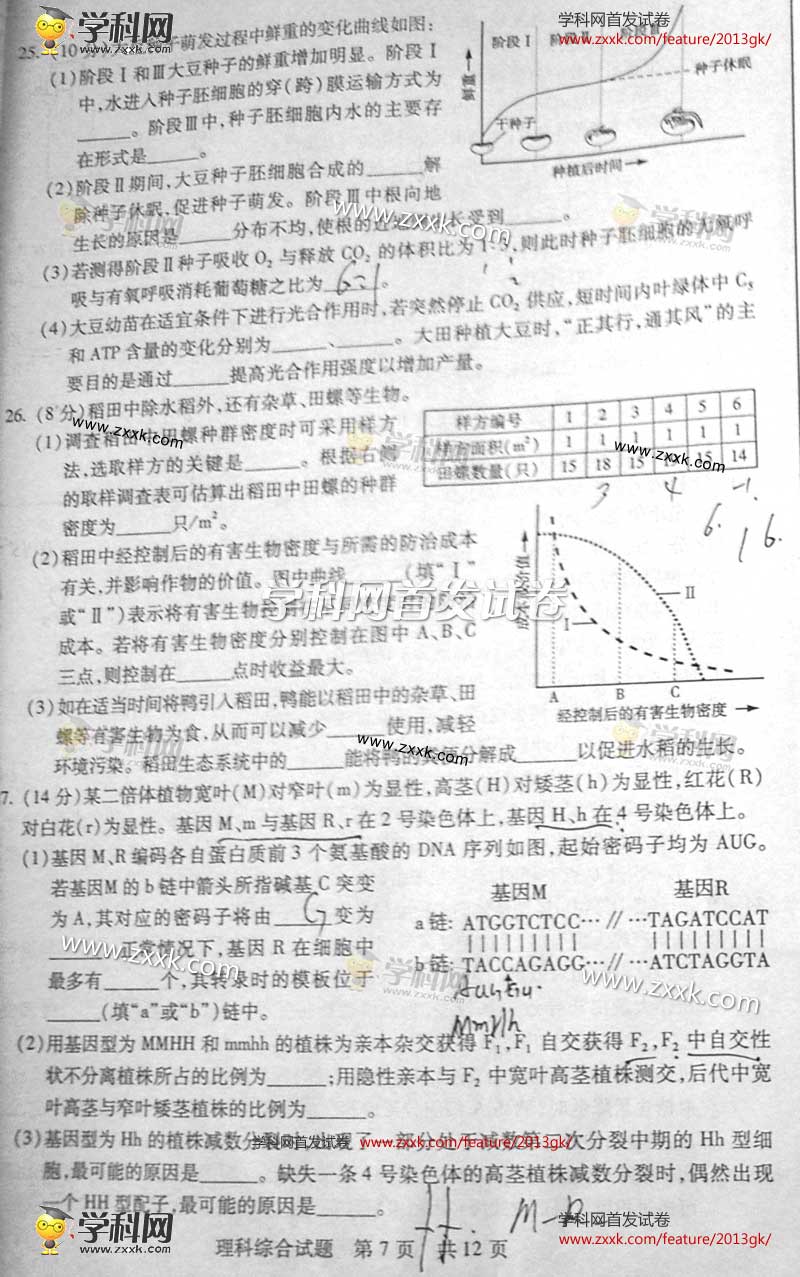 学科网首发试卷
www.zxxk.com/feature/2013gk/
25.
萌发过程中鲜重的变化曲线如图:
(1)阶段Ⅰ和Ⅲ大豆种子的鲜重增加明显。阶段Ⅰ
中,水进入种子胚细胞的穿(跨)膜运输方式为
______。阶段Ⅲ中,种子胚细胞内水的主要存
在形式是______。
(2)阶段Ⅱ期间,大豆种子胚细胞合成的______解
除种子休眠,促进种子萌发。阶段Ⅲ中根向地
生长的原因是______分布不均,使根的近 长受到______。
(3)若测得阶段Ⅱ种子吸收O₂与释放CO₂的体积比为1:3,则此时种子胚细胞的无氧呼
吸与有氧呼吸消耗葡萄糖之比为 6:1 。
(4)大豆幼苗在适宜条件下进行光合作用时,若突然停止CO₂供应,短时间内叶绿体中C₅
和ATP含量的变化分别为______、______。大田种植大豆时,“正其行,通其风”的主
要目的是通过______提高光合作用强度以增加产量。
鲜重
阶段Ⅰ 阶段Ⅱ 阶段Ⅲ
种子休眠
干种子
种植后时间
26. (8分)稻田中除水稻外,还有杂草、田螺等生物。
(1)调查稻田中田螺种群密度时可采用样方
法,选取样方的关键是______。根据右侧
的取样调查表可估算出稻田中田螺的种群
密度为______只/m²。
样方编号 1 2 3 4 5 6
样方面积(m²) 1 1 1 1 1 1
田螺数量(只) 15 18 15 19 15 14
3 4 -1.
6.
16.
(2)稻田中经控制后的有害生物密度与所需的防治成本
有关,并影响作物的价值。图中曲线______(填“Ⅰ”
或“Ⅱ”)表示将有害生物控
成本。若将有害生物密度分别控制在图中A、B、C
三点,则控制在______点时收益最大。
Ⅰ
Ⅱ
A B C
经控制后的有害生物密度
(3)如在适当时间将鸭引入稻田,鸭能以稻田中的杂草、田
螺等有害生物为食,从而可以减少______使用,减轻
环境污染。稻田生态系统中的______能将鸭的粪便分解成______以促进水稻的生长。
7. (14分)某二倍体植物宽叶(M)对窄叶(m)为显性,高茎(H)对矮茎(h)为显性,红花(R)
对白花(r)为显性。基因M、m与基因R、r在2号染色体上,基因H、h在4号染色体上。
(1)基因M、R编码各自蛋白质前3个氨基酸的DNA序列如图,起始密码子均为AUG。
若基因M的b链中箭头所指碱基C突变
为A,其对应的密码子将由 G 变为
______。正常情况下,基因R在细胞中
最多有______个,其转录时的模板位于
______(填“a”或“b”)链中。
基因M 基因R
a链: ATGGTCTCC…//…TAGATCCAT
b链: TACCAGAGG…//…ATCTAGGTA
MmHh
(2)用基因型为MMHH和mmhh的植株为亲本杂交获得F₁,F₁自交获得F₂,F₂中自交性
状不分离植株所占的比例为______;用隐性亲本与F₂中宽叶高茎植株测交,后代中宽
叶高茎与窄叶矮茎植株的比例为______。
(3)基因型为Hh的植株减数分裂时,出现了一部分处于减数第二次分裂中期的Hh型细
胞,最可能的原因是______。缺失一条4号染色体的高茎植株减数分裂时,偶然出现
一个HH型配子,最可能的原因是______。
理科综合试题 第7页 共12页
学科网
www.zxxk.com
学科网首发试卷
www.zxxk.com/feature/2013gk/